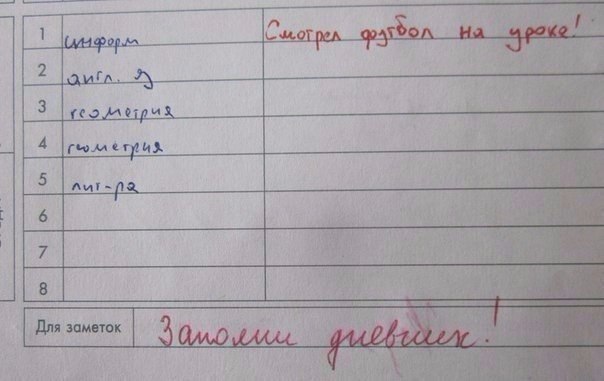 1 информ Смотрел футбол на уроке!
2 англ. я
3 геометрия
4 геометрия
5 лит-ра
6
7
8
Для заметок Заполни дневник!